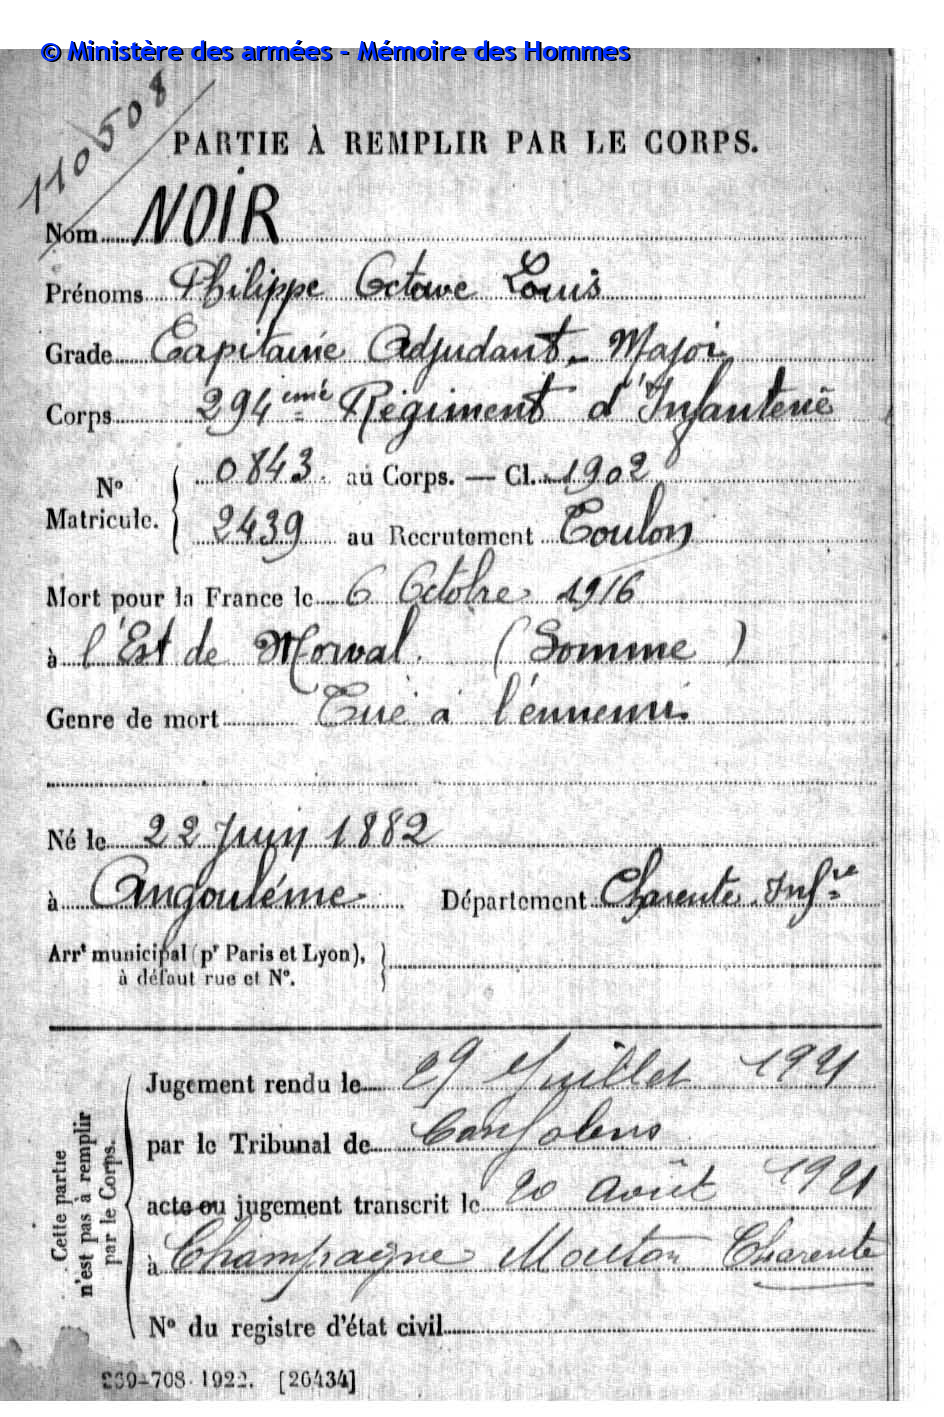 © Ministère des armées - Mémoire des Hommes
110508
PARTIE À REMPLIR PAR LE CORPS.
Nom NOIR
Prénoms Philippe Octave Louis
Grade Capitaine Adjudant-Major
Corps 294eme Régiment d'Infanterie
N° Matricule. { 0843 au Corps. — Cl. 1902
2439 au Recrutement Toulon
Mort pour la France le 6 Octobre 1916
à l'Est de Morval (Somme)
Genre de mort Tué à l'ennemi
Né le 22 Juin 1882
à Angoulême Département Charente Infre
Arrt municipal (pr Paris et Lyon), }
à défaut rue et N°.
Cette partie n'est pas à remplir par le Corps.
Jugement rendu le 29 Juillet 1921
par le Tribunal de Confolens
acte ou jugement transcrit le 20 août 1921
à Champagne Mouton Charente
N° du registre d'état civil
269-708. 1922. [26434]